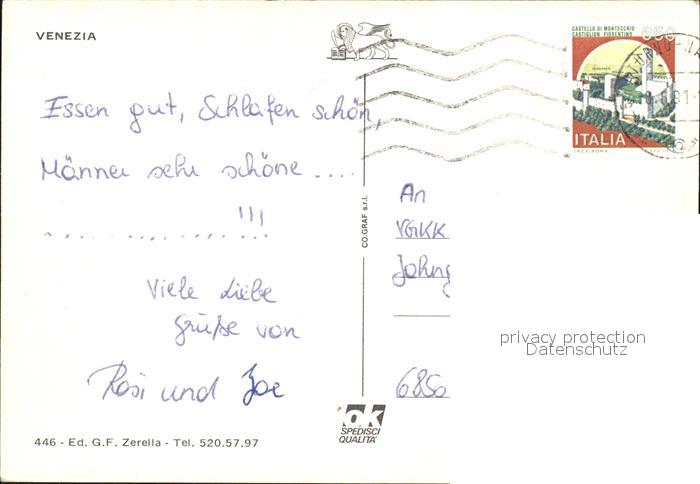 VENEZIA
Essen gut, Schlafen schön,
Männer sehr schöne ....
!!!
Viele Liebe
Grüße von
Rosi und Joe
446 - Ed. G.F. Zerella - Tel. 520.57.97
CO.GRAF s.r.l.
ok
SPEDISCI
QUALITA'
CASTELLO DI MONTECCHIO
CASTIGLION FIORENTINO
650
ITALIA
An
VGKK
6850
privacy protection
Datenschutz